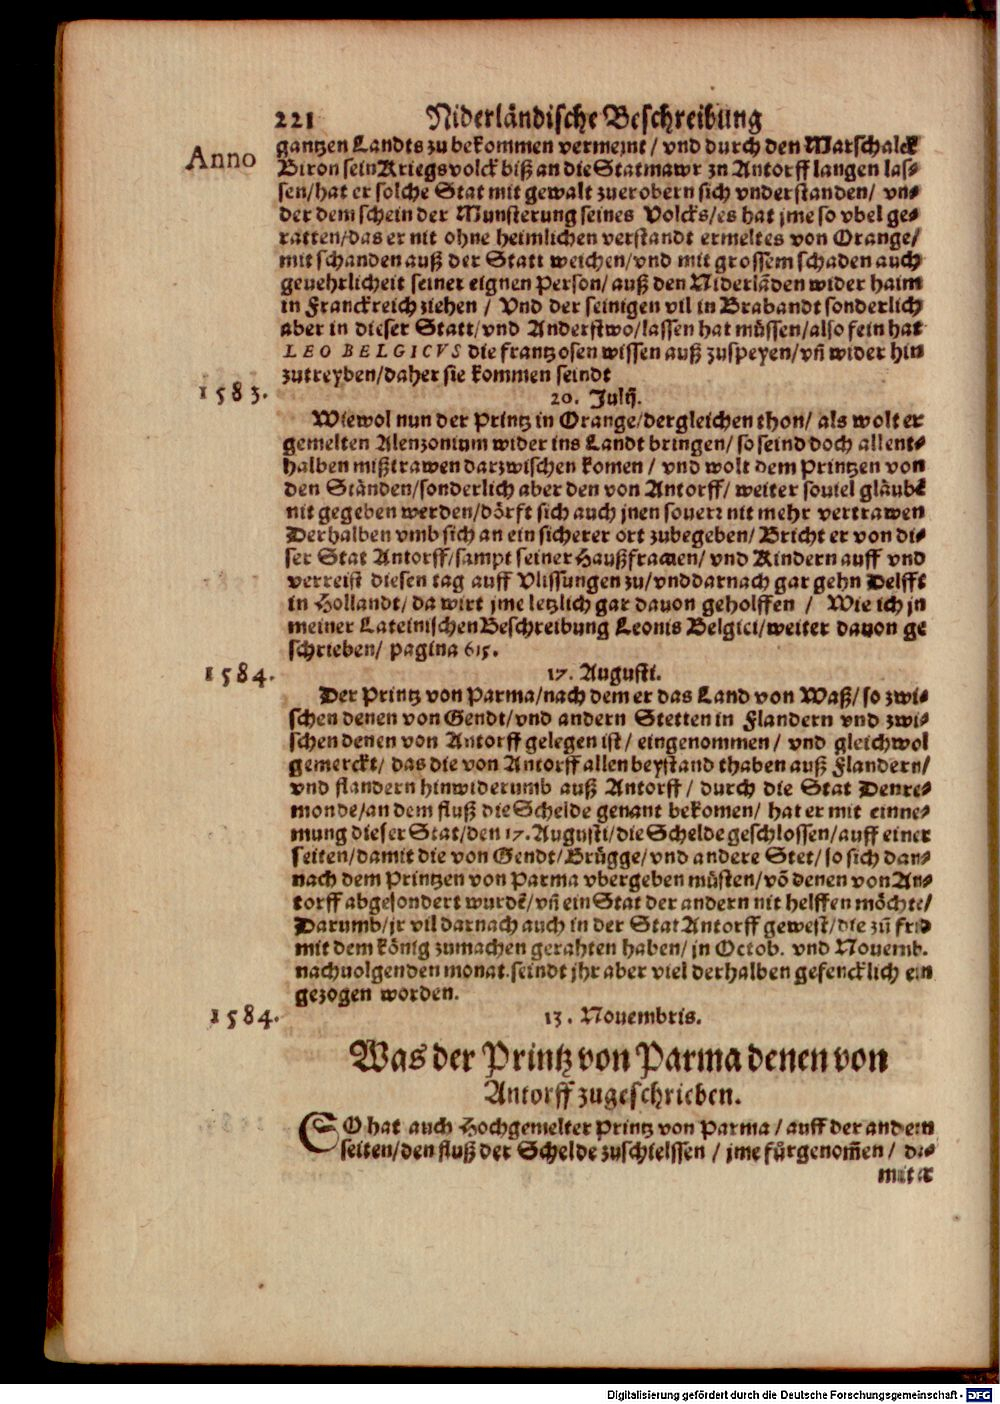 221 Niderländische Beschreibung
Anno
gantzen Landts zu bekommen vermeint / vnd durch den Marschalck
Biron sein Kriegsvolck biß an die Statmawr zn Antorff langen las-
sen/hat er solche Stat mit gewalt zuerobern sich vnderstanden/ vn-
der dem schein der Munsterung seines Volcks/es hat jme so vbel ge-
ratten/das er nit ohne heimlichen verstandt ermeltes von Orange/
mit schanden auß der Statt weichen/vnd mit grossem schaden auch
geuehrlicheit seiner eignen Person/ auß den Niderlãden wider haim
in Franckreich ziehen / Vnd der seinigen vil in Brabandt sonderlich
aber in dieser Statt/vnd Anderstwo/lassen hat müssen/also fein hat
LEO BELGICVS die frantzosen wissen auß zuspeyen/vñ wider hin
zutreyben/daher sie kommen seindt
1583. 20. Julij.
Wiewol nun der Printz in Orange/dergleichen thon/ als wolt er
gemelten Alenzonium wider ins Landt bringen/ so seind doch allent-
halben mißtrawen darzwischen komen / vnd wolt dem Printzen von
den Ständen/sonderlich aber den von Antorff/ weiter souiel gläubẽ
nit gegeben werden/dörft sich auch jnen souerr nit mehr vertrawen
Derhalben vmb sich an ein sicherer ort zubegeben/ Bricht er von di-
ser Stat Antorff/sampt seiner Haußfrawen/ vnd Kindern auff vnd
verreist diesen tag auff Vlissungen zu/vnd darnach gar gehn Delfft
in Hollandt/ da wirt jme letzlich gar dauon geholffen / Wie ich jn
meiner Lateinischen Beschreibung Leonis Belgici/weiter dauon ge
schrieben/ pagina 615.
1584. 17. Augusti.
Der Printz von Parma/nach dem er das Land von Waß/ so zwi-
schen denen von Gendt/vnd andern Stetten in Flandern vnd zwi-
schen denen von Antorff gelegen ist/ eingenommen/ vnd gleichwol
gemerckt/ das die von Antorff allen beystand thaben auß Flandern/
vnd flandern hinwiderumb auß Antorff / durch die Stat Denre-
monde/an dem fluß die Schelde genant bekomen/ hat er mit einne-
mung dieser Stat/den 17. Augusti/die Schelde geschlossen/auff einer
seiten/damit die von Gendt/Brügge/vnd andere Stet/so sich dar-
nach dem Printzen von Parma vbergeben müsten/võ denen von An-
torff abgesondert wurdẽ/vñ ein Stat der andern nit helffen möchte/
Darumb/jr vil darnach auch in der Stat Antorff gewest/die zũ frid
mit dem könig zumachen gerahten haben/ jn Octob. vnd Nouemb.
nachuolgenden monat.seindt jhr aber viel derhalben gefencklich ein
gezogen worden.
1584. 13. Nouembris.
Was der Printz von Parma denen von
Antorff zugeschrieben.
SO hat auch Hochgemelter Printz von Parma / auff der andern
seiten/den fluß der Schelde zuschielssen / jme fürgenom̃en / da-
mit er
Digitalisierung gefördert durch die Deutsche Forschungsgemeinschaft - DFG